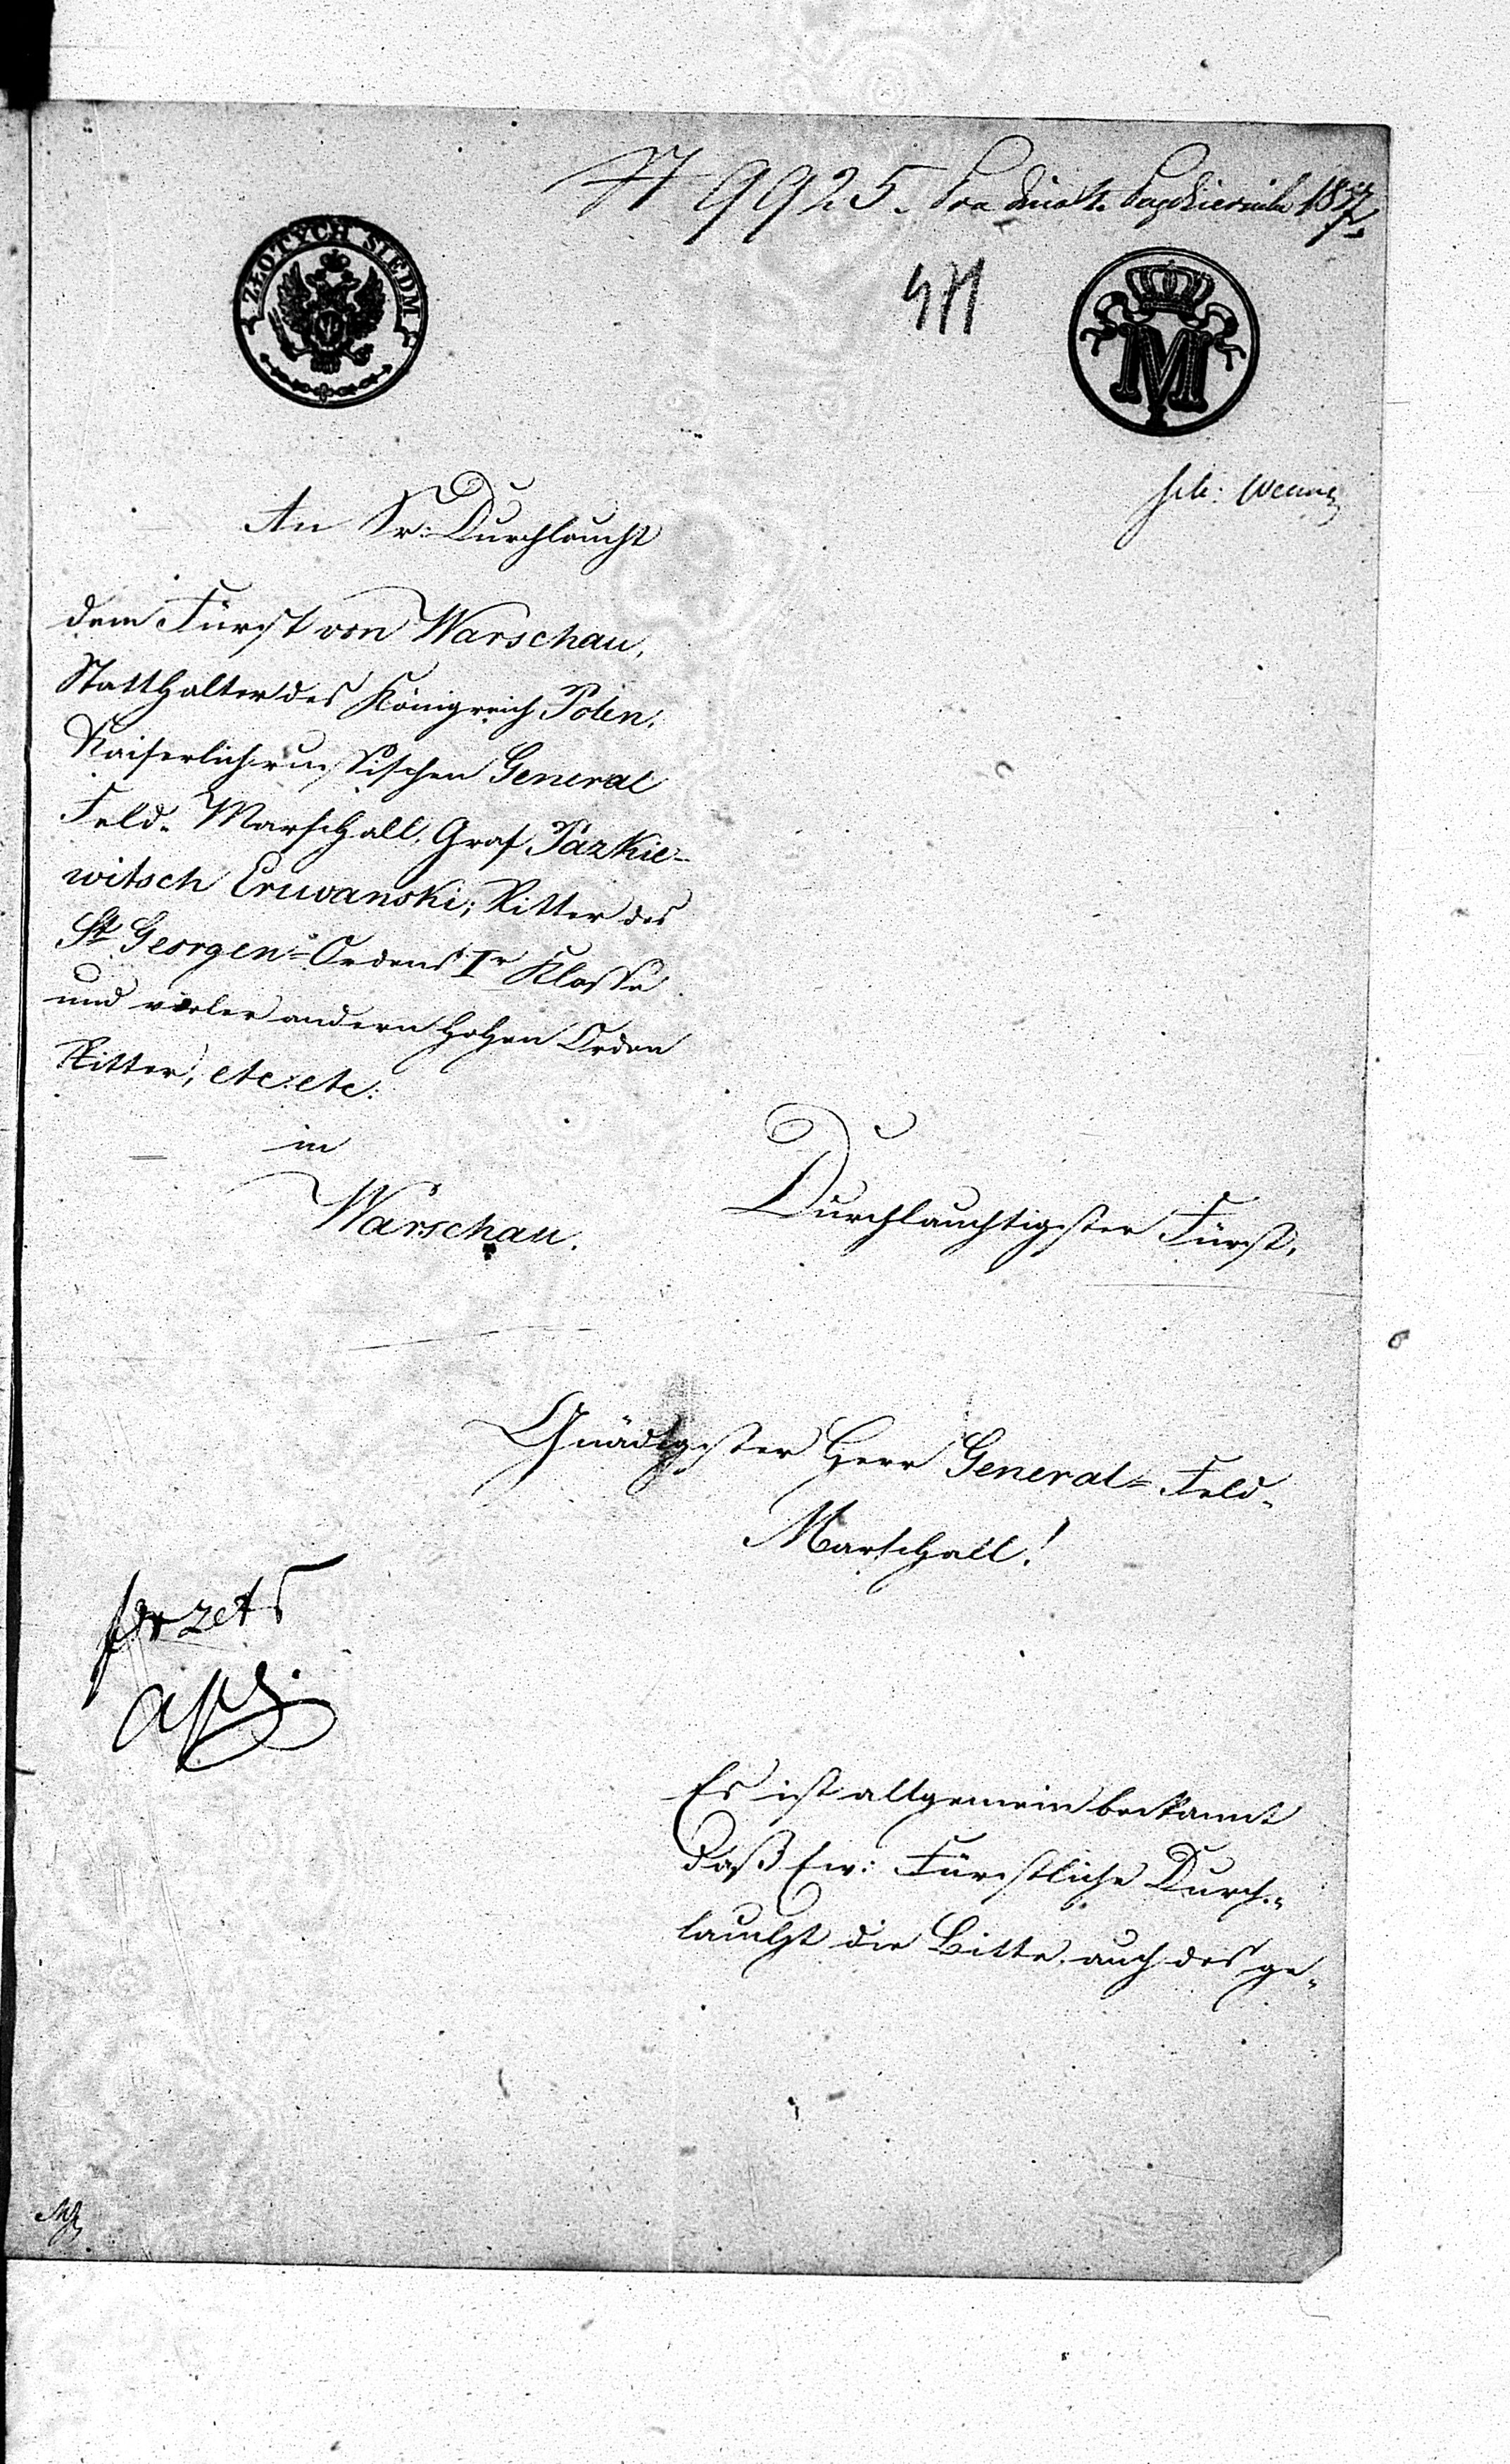 N 9925. dnia 4. Października 18
471
ZŁOTYCH SIEDM
M
An Sr: Durchlaucht
dem Fürst von Warschau,
Statthalter des Königreich Polen,
Kaiserlich russischen General
Feld- Marschall, Graf Pazkie-
witsch Eriwanski; Ritter des
St Georgen-Ordens Ir Klasse
und vieler andern hohen Orden
Ritter, etc: etc:
in
Warschau.
Durchlauchtigster Fürst,
Gnädigster Herr General- Feld-
Marschall!
Es ist allgemein bekannt
daß Ew: Fürstliche Durch-
laucht die Bitte, auch des ge-